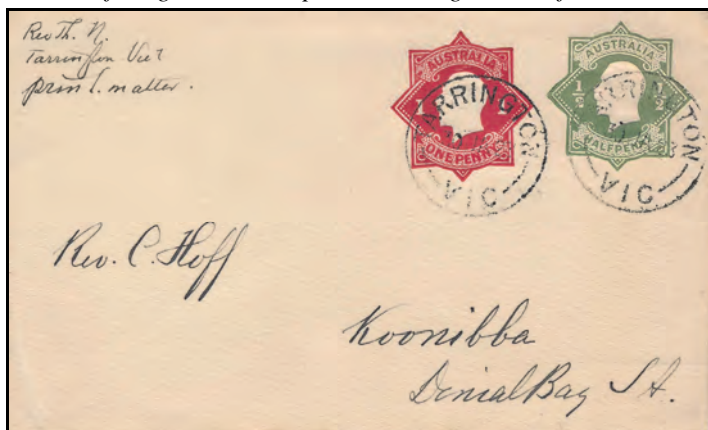 Rev Th. N.
Tarrington Vict
print. matter.
AUSTRALIA
1
ONE PENNY
TARRINGTON
VIC
AUSTRALIA
½ ½
HALFPENNY
TARRINGTON
VIC
Rev. C. Hoff
Koonibba
Denial Bay S A.